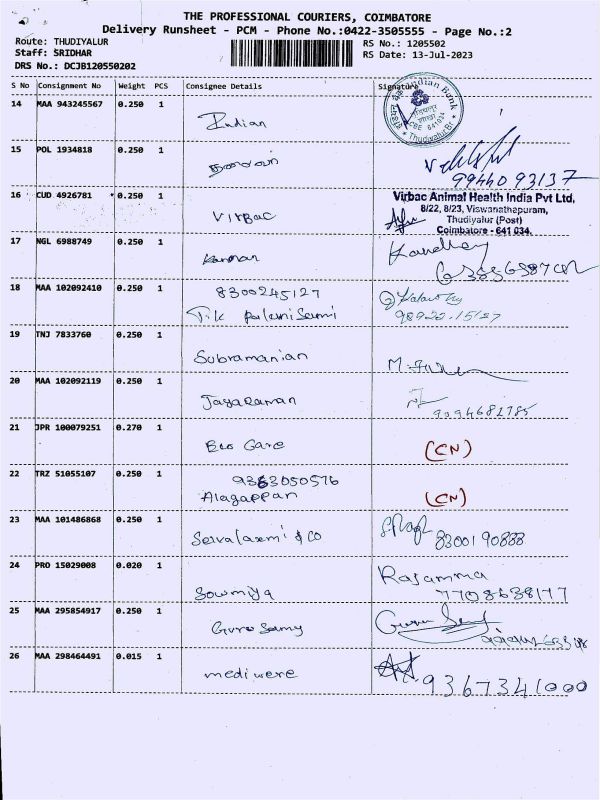 THE PROFESSIONAL COURIERS, COIMBATORE
Delivery Runsheet - PCM - Phone No.:0422-3505555 - Page No.:2
Route: THUDIYALUR
RS No.: 1205502
Staff: SRIDHAR
RS Date: 13-Jul-2023
DRS No.: DCJB120550202
S No Consignment No Weight PCS Consignee Details Signature
14 MAA 943245567 0.250 1
Indian
Indian Bank
Thudiyalur Br
15 POL 1934818 0.250 1
99440 93137
16 CUD 4926781 0.250 1
Virbac
Virbac Animal Health India Pvt Ltd,
8/22, 8/23, Viswanathapuram,
Thudiyalur (Post)
Coimbatore - 641 034.
17 NGL 6988749 0.250 1
Kannan
18 MAA 102092410 0.250 1
8300245127
T.K PalaniSami
98922-15127
19 TNJ 7833760 0.250 1
Subramanian
20 MAA 102092119 0.250 1
Jayaraman
9094681785
21 JPR 100079251 0.270 1
Eco Care
(CN)
22 TRZ 51055107 0.250 1
9363050576
Alagappan
(CN)
23 MAA 101486868 0.250 1
Selvalaxmi & CO
8300190888
24 PRO 15029008 0.020 1
Sowmiya
Rajamma
7708638177
25 MAA 295854917 0.250 1
Guru Samy
26 MAA 298464491 0.015 1
mediwere
9367341000